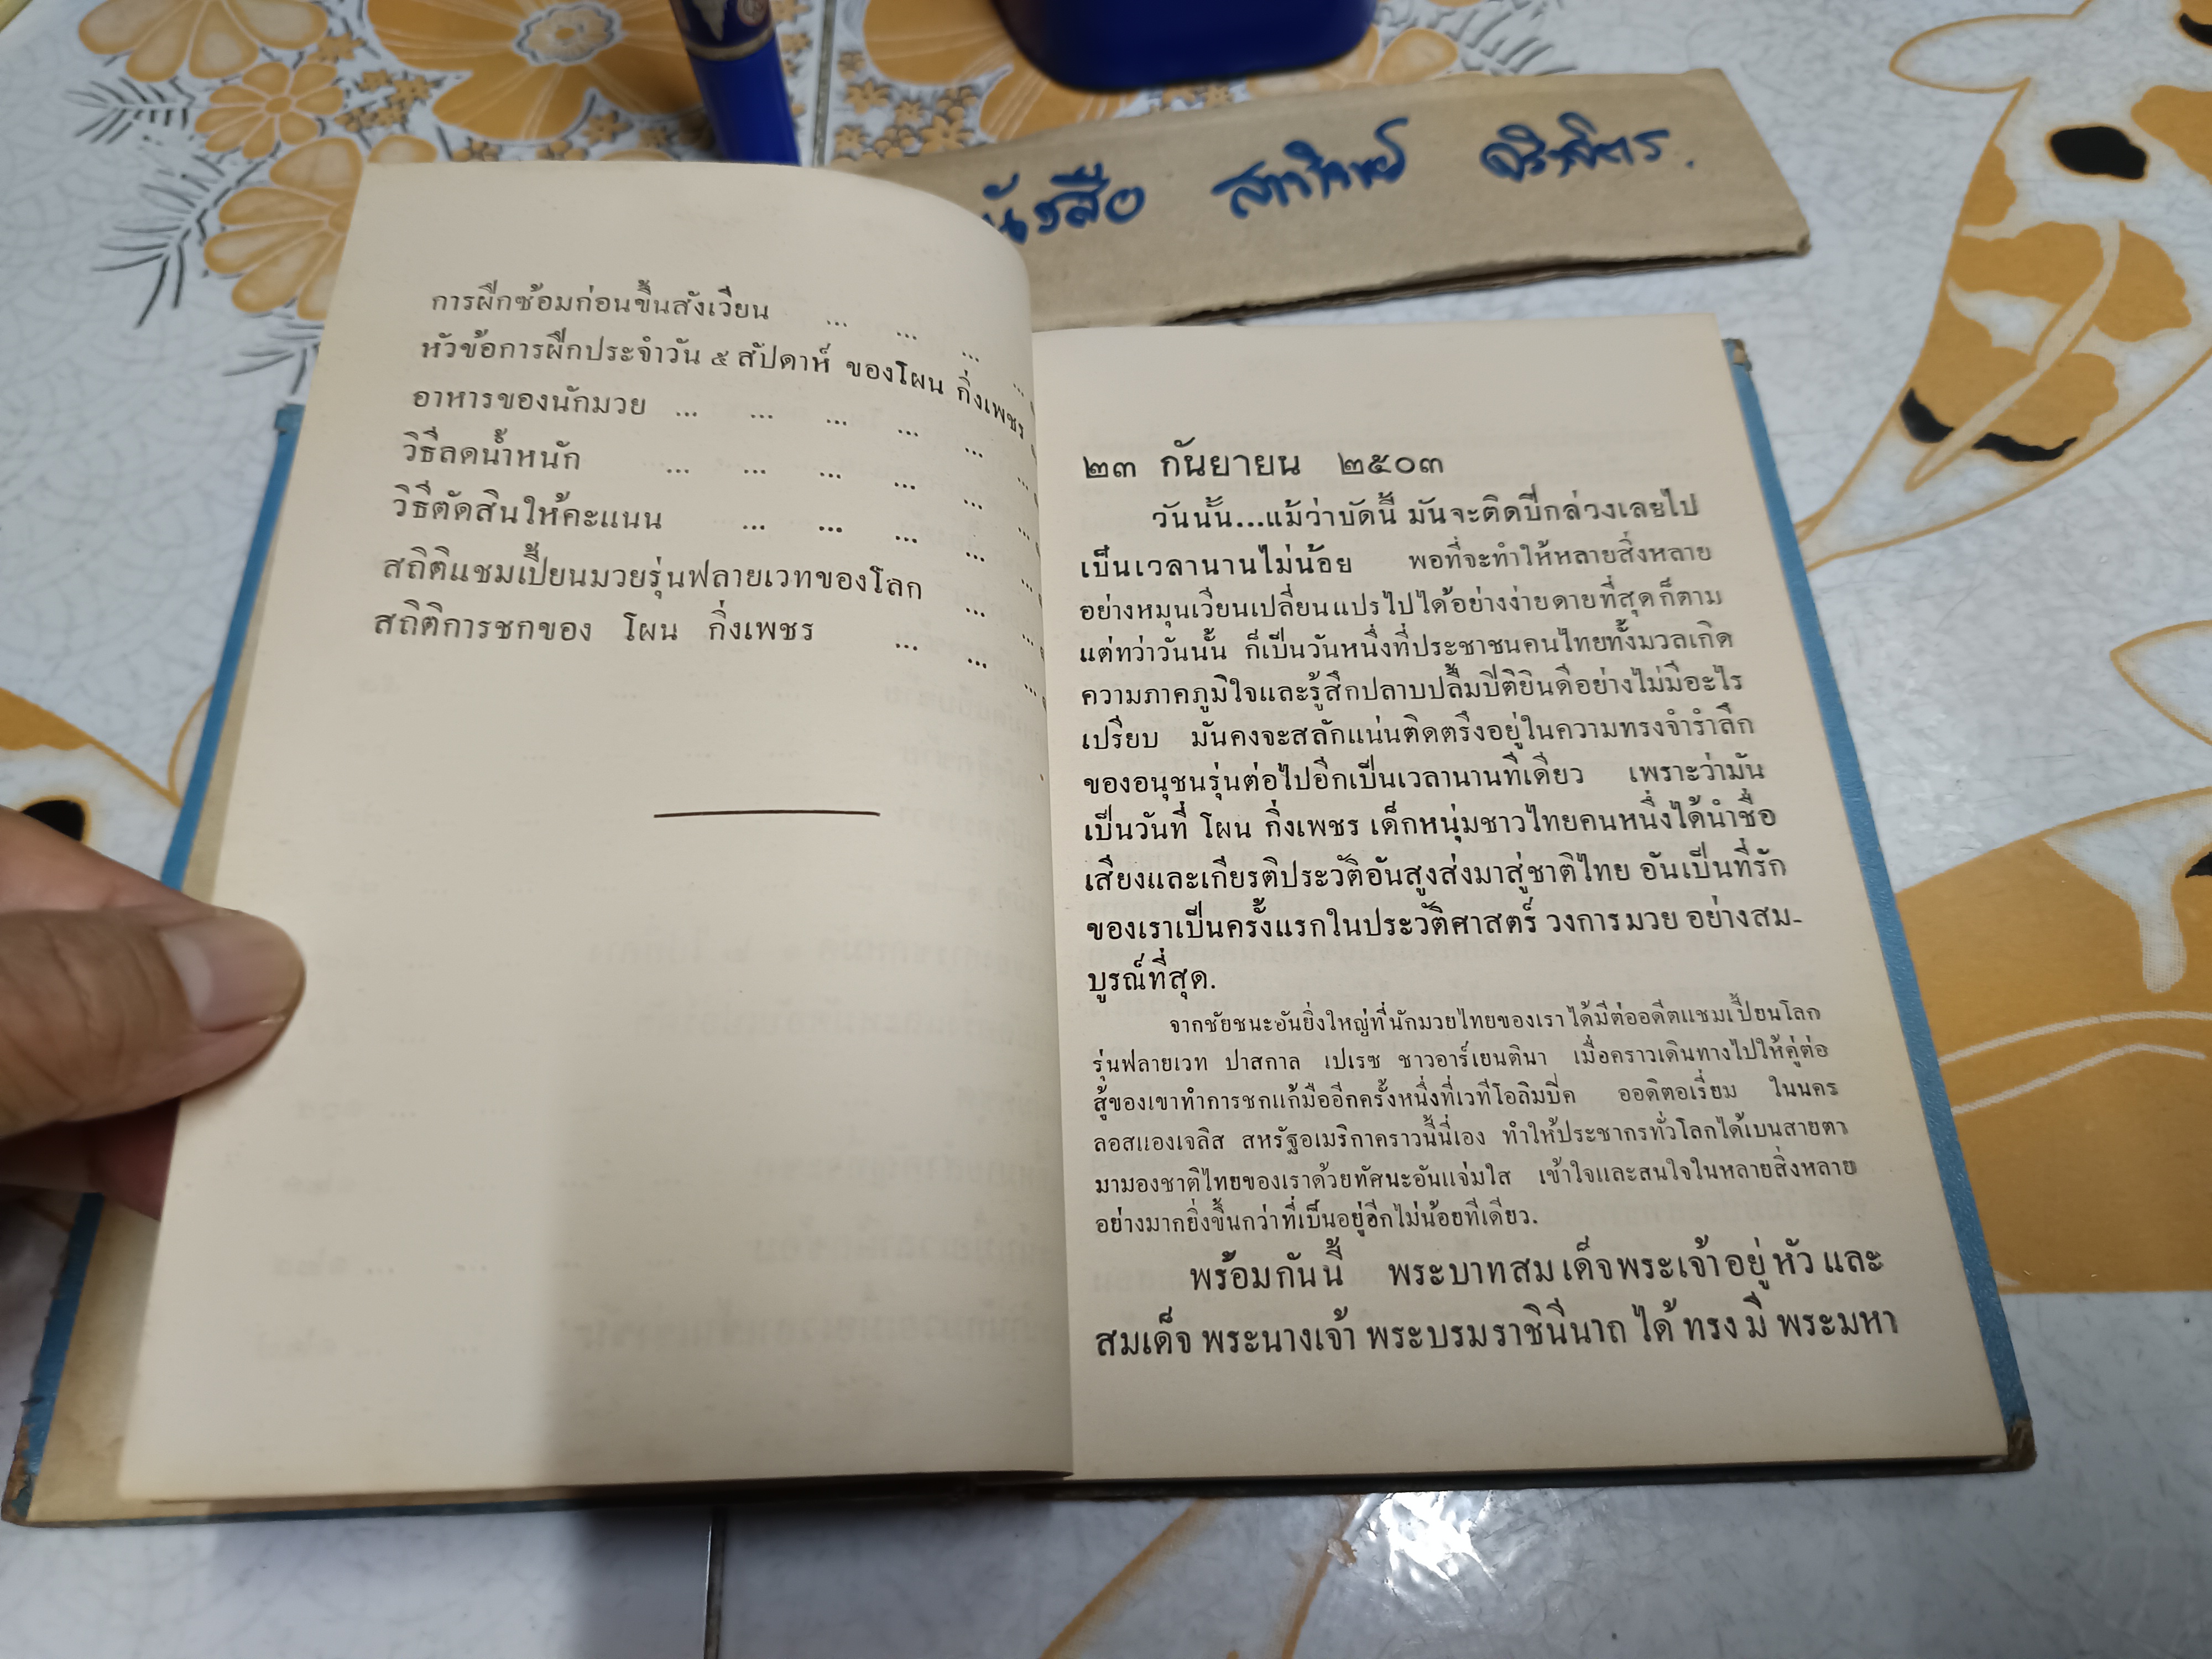 การฝึกซ้อมก่อนขึ้นสังเวียน ... ... ... ...
หัวข้อการฝึกประจำวัน ๕ สัปดาห์ ของโผน กิ่งเพชร
อาหารของนักมวย ... ... ... ... ... ...
วิธีลดน้ำหนัก ... ... ... ... ... ...
วิธีตัดสินให้คะแนน ... ... ... ... ...
สถิติแชมเปี้ยนมวยรุ่นฟลายเวทของโลก ... ...
สถิติการชกของ โผน กิ่งเพชร ... ... ...
๒๓ กันยายน ๒๕๐๓
วันนั้น...แม้ว่าบัดนี้ มันจะติดปีกล่วงเลยไป
เป็นเวลานานไม่น้อย พอที่จะทำให้หลายสิ่งหลาย
อย่างหมุนเวียนเปลี่ยนแปรไปได้อย่างง่ายดายที่สุดก็ตาม
แต่ทว่าวันนั้น ก็เป็นวันหนึ่งที่ประชาชนคนไทยทั้งมวลเกิด
ความภาคภูมิใจและรู้สึกปลาบปลื้มปีติยินดีอย่างไม่มีอะไร
เปรียบ มันคงจะสลักแน่นติดตรึงอยู่ในความทรงจำรำลึก
ของอนุชนรุ่นต่อไปอีกเป็นเวลานานทีเดียว เพราะว่ามัน
เป็นวันที่ โผน กิ่งเพชร เด็กหนุ่มชาวไทยคนหนึ่งได้นำชื่อ
เสียงและเกียรติประวัติอันสูงส่งมาสู่ชาติไทย อันเป็นที่รัก
ของเราเป็นครั้งแรกในประวัติศาสตร์ วงการมวย อย่างสม-
บูรณ์ที่สุด.
จากชัยชนะอันยิ่งใหญ่ที่นักมวยไทยของเราได้มีต่ออดีตแชมเปี้ยนโลก
รุ่นฟลายเวท ปาสกาล เปเรซ ชาวอาร์เยนตินา เมื่อคราวเดินทางไปให้คู่ต่อ
สู้ของเขาทำการชกแก้มืออีกครั้งหนึ่งที่เวทีโอลิมปิค ออดิตอเรี่ยม ในนคร
ลอสแองเจลิส สหรัฐอเมริกาคราวนี้นี่เอง ทำให้ประชากรทั่วโลกได้เบนสายตา
มามองชาติไทยของเราด้วยทัศนะอันแจ่มใส เข้าใจและสนใจในหลายสิ่งหลาย
อย่างมากยิ่งขึ้นกว่าที่เป็นอยู่อีกไม่น้อยทีเดียว.
พร้อมกันนี้ พระบาทสมเด็จพระเจ้าอยู่หัว และ
สมเด็จพระนางเจ้า พระบรมราชินีนาถ ได้ ทรงมี พระมหา